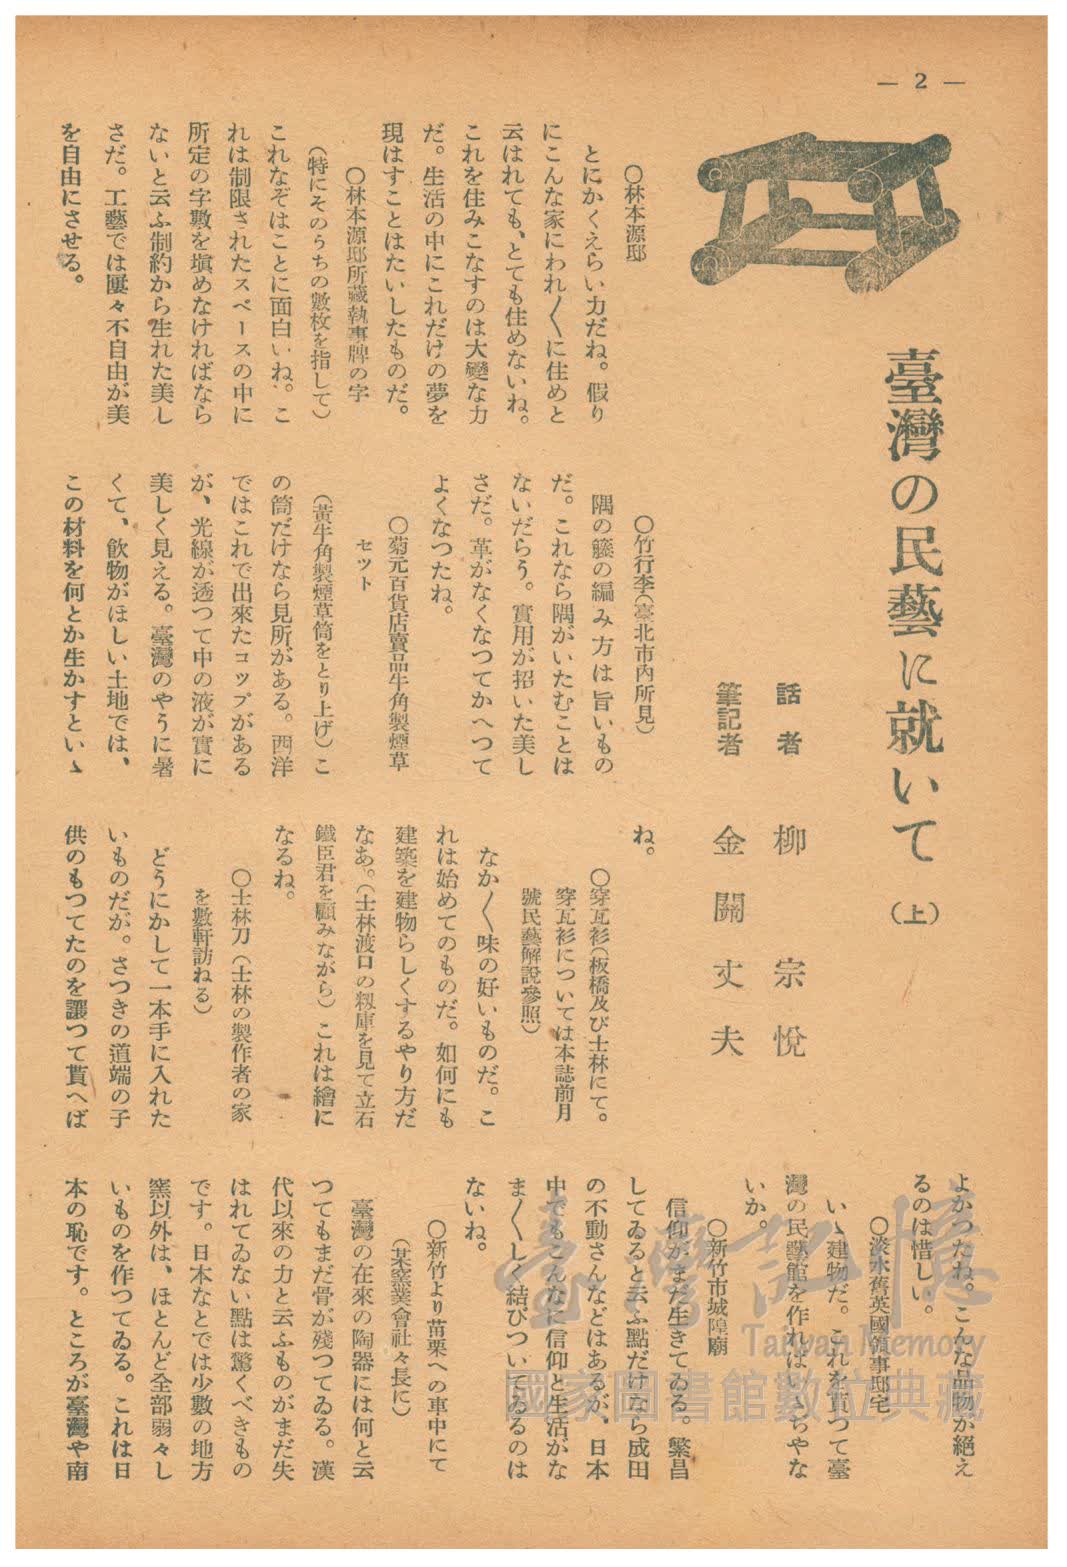 — 2 —
臺灣の民藝に就いて（上）
話者　柳宗悅
筆記者　金關丈夫
〇林本源邸
とにかくえらい力だね。假り
にこんな家にわれ〳〵に住めと
云はれても、とても住めないね。
これを住みこなすのは大變な力
だ。生活の中にこれだけの夢を
現はすことはたいしたものだ。
〇林本源邸所藏執事牌の字
（特にそのうちの數枚を指して）
これなぞはことに面白いね。こ
れは制限されたスペースの中に
所定の字數を塡めなければなら
ないと云ふ制約から生れた美し
さだ。工藝では屢々不自由が美
を自由にさせる。
〇竹行李（臺北市內所見）
隅の籐の編み方は旨いもの
だ。これなら隅がいたむことは
ないだらう。實用が招いた美し
さだ。革がなくなつてかへつて
よくなつたね。
〇菊元百貨店賣品牛角製煙草
セツト
（黃牛角製煙草筒をとり上げ）こ
の筒だけなら見所がある。西洋
ではこれで出來たコップがある
が、光線が透つて中の液が實に
美しく見える。臺灣のやうに暑
くて、飮物がほしい土地では、
この材料を何とか生かすといゝ
ね。
〇穿瓦衫（板橋及び士林にて。
穿瓦衫については本誌前月
號民藝解說參照）
なか〳〵味の好いものだ。こ
れは始めてのものだ。如何にも
建築を建物らしくするやり方だ
なあ。（士林渡口の籾庫を見て立石
鐵臣君を顧みながら）これは繪に
なるね。
〇士林刀（士林の製作者の家
を數軒訪ねる）
どうにかして一本手に入れた
いものだが。さつきの道端の子
供のもつてたのを讓つて貰へば
よかつたね。こんな品物が絕え
るのは惜しい。
〇淡水舊英國領事邸宅
いゝ建物だ。これを貰つて臺
灣の民藝館を作ればいゝぢやな
いか。
〇新竹市城隍廟
信仰がまだ生きてゐる。繁昌
してゐると云ふ點だけなら成田
の不動さんなどはあるが、日本
中でもこんなに信仰と生活がな
ま〳〵しく結びついてゐるのは
ないね。
〇新竹より苗栗への車中にて
（某窯業會社々長に）
臺灣の在來の陶器には何と云
つてもまだ骨が殘つてゐる。漢
代以來の力と云ふものがまだ失
はれてゐない點は驚くべきもの
です。日本なとでは少數の地方
窯以外は、ほとんど全部弱々し
いものを作つてゐる。これは日
本の恥です。ところが臺灣や南
臺灣記憶
Taiwan Memory
國家圖書館數位典藏